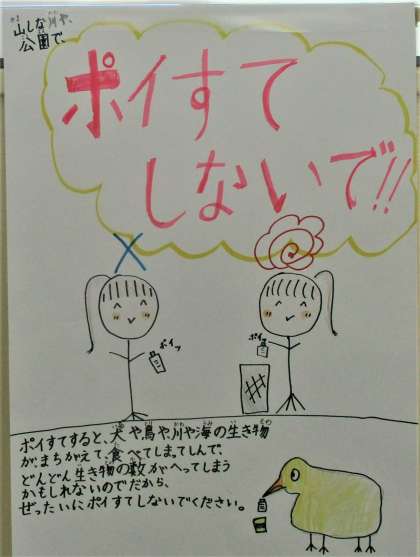 山しな川や、
公園で、
ポイすて
しないで!!
ポイッ
ポイッ
ポイすてすると、犬や、鳥や、川や海の生き物
が、まちがえて、食べてしまってしんで、
どんどん生き物の数がへってしまう
かもしれないのでだから、
ぜったいにポイすてしないでください。